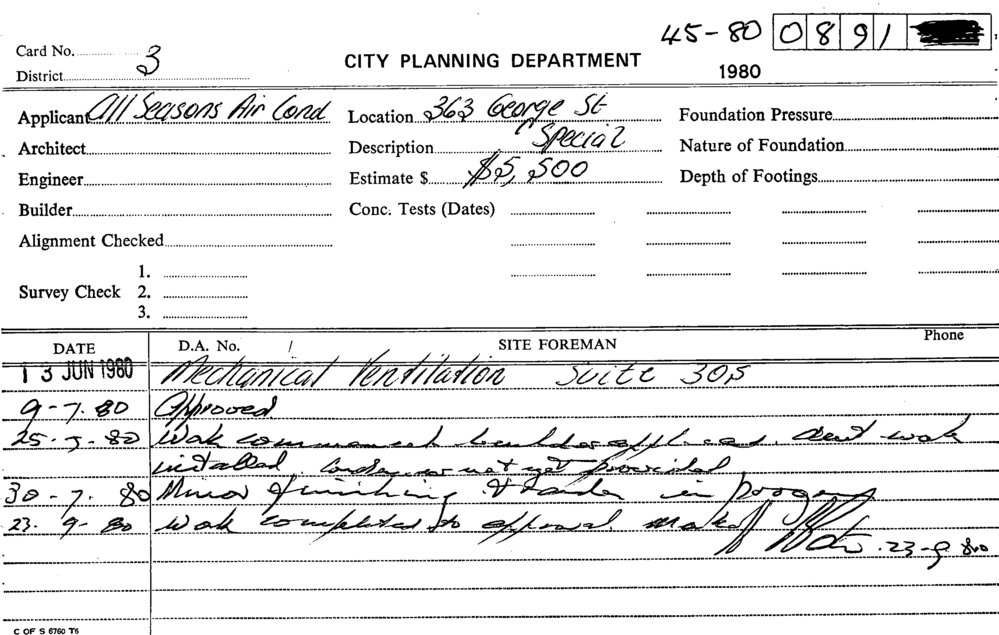 45-80 0891
Card No. 3
District
CITY PLANNING DEPARTMENT
1980
Applicant All Seasons Air Cond
Location 363 George St
Foundation Pressure
Architect
Description Special
Nature of Foundation
Engineer
Estimate $ $5,500
Depth of Footings
Builder
Conc. Tests (Dates)
Alignment Checked
1.
Survey Check 2.
3.
DATE D.A. No. / SITE FOREMAN Phone
13 JUN 1980 Mechanical Ventilation Suite 305
9-7.80 Approved
25-7-80 Wok commenced work
installed, not yet provided
30-7.80 Minor finishing in
23.9-80 Wok completed to 23-9 80
C OF S 6760 T6